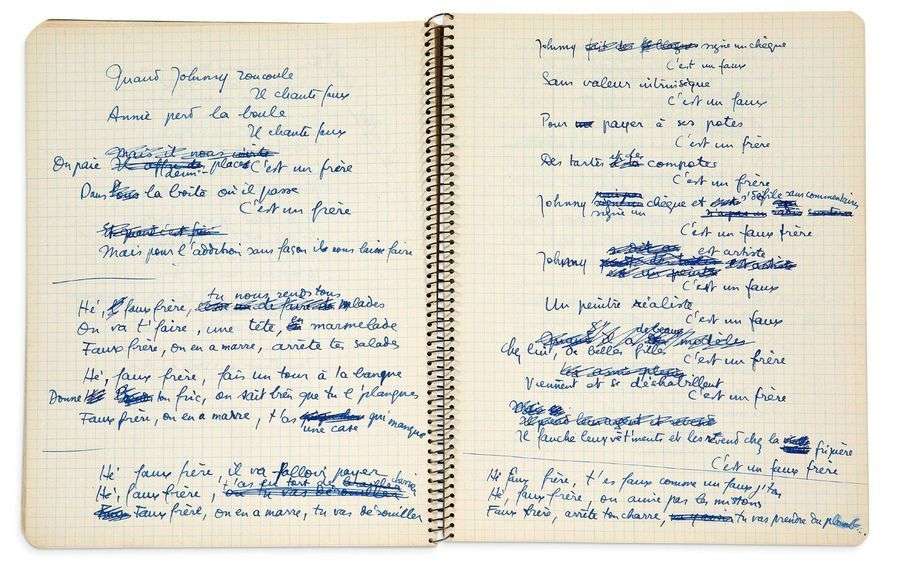 Quand Johnny roucoule
Il chante faux
Annie perd la boule
Il chante faux
Mais il nous invite
On paie demi-place C'est un frère
Dans la boîte où il passe
C'est un frère
Mais pour l'addition sans façon il nous laisse faire
tu nous rends tous
Hé, faux frère, malades
On va t'faire, une tête, en marmelade
Faux frère, on en a marre, arrête tes salades
Hé, faux frère, fais un tour à la banque
Donne ton fric, on sait bien que tu l'planques
Faux frère, on en a marre, t'as qui manque
une case
Hé faux frère, il va falloir payer
t'as en tort de
Hé, faux frère, ou tu vas dérouiller
Faux frère, on en a marre, tu vas dérouiller
Johnny signe un chèque
C'est un faux
Sans valeur intrinsèque
C'est un faux
Pour payer à ses potes
C'est un frère
Des tartes compotes
C'est un frère
Johnny signe un chèque et s'défile sans commentaires
C'est un faux frère
Johnny est artiste
C'est un faux
Un peintre réaliste
C'est un faux
de beaux
Quand il a modèles
Chez lui, de belles filles C'est un frère
Viennent et se déshabillent
C'est un frère
Il fauche leurs vêtements et les revend chez la fripière
C'est un faux frère
Hé faux frère, t'es faux comme un faux j'ton
Hé, faux frère, on aime pas les
Faux frère, arrête ton charre, tu vas prendre du plomb